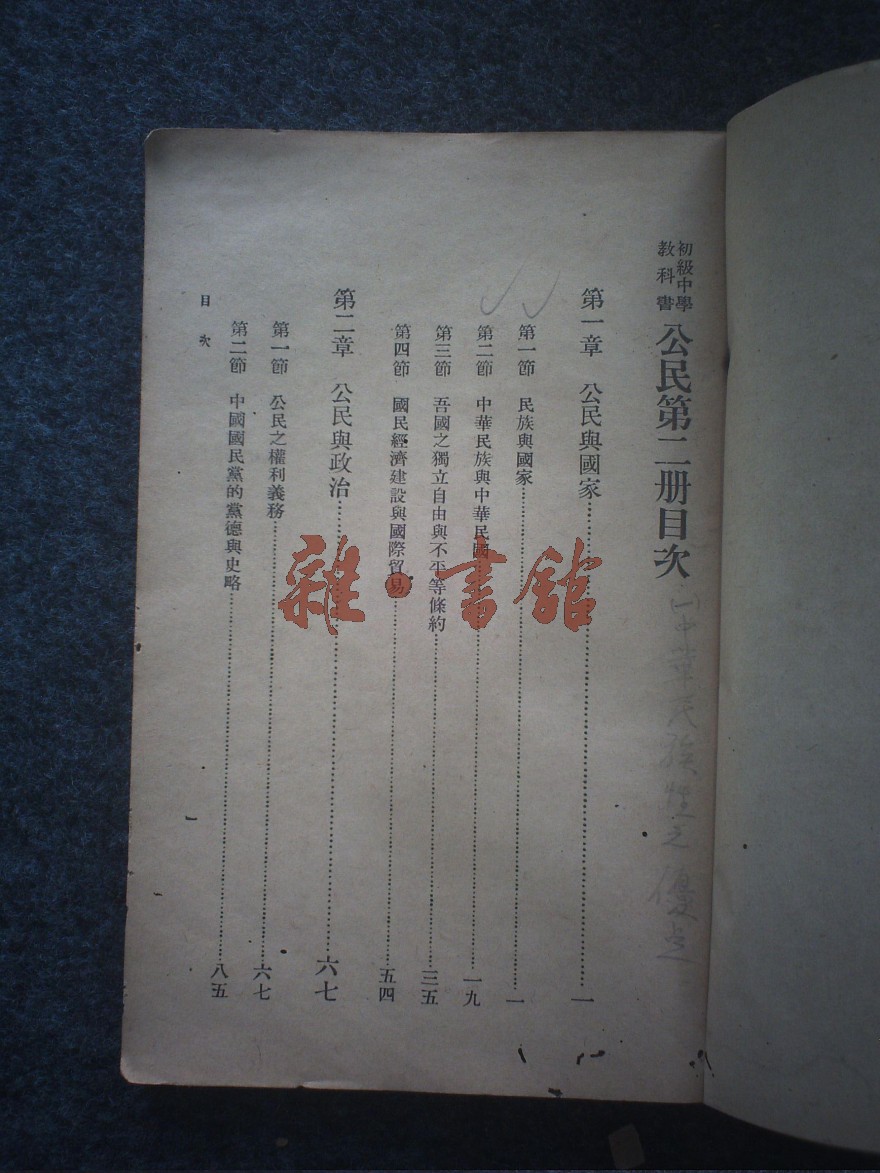 初級中學
教科書
公民第二册目次
(一)中華民族性之優点
第一章 公民與國家……一
第一節 民族與國家……一
第二節 中華民族與中華民國……一九
第三節 吾國之獨立自由與不平等條約……三五
第四節 國民經濟建設與國際貿易……五四
第二章 公民與政治……六七
第一節 公民之權利義務……六七
第二節 中國國民黨的黨德與史略……八五
目次
雜·書館